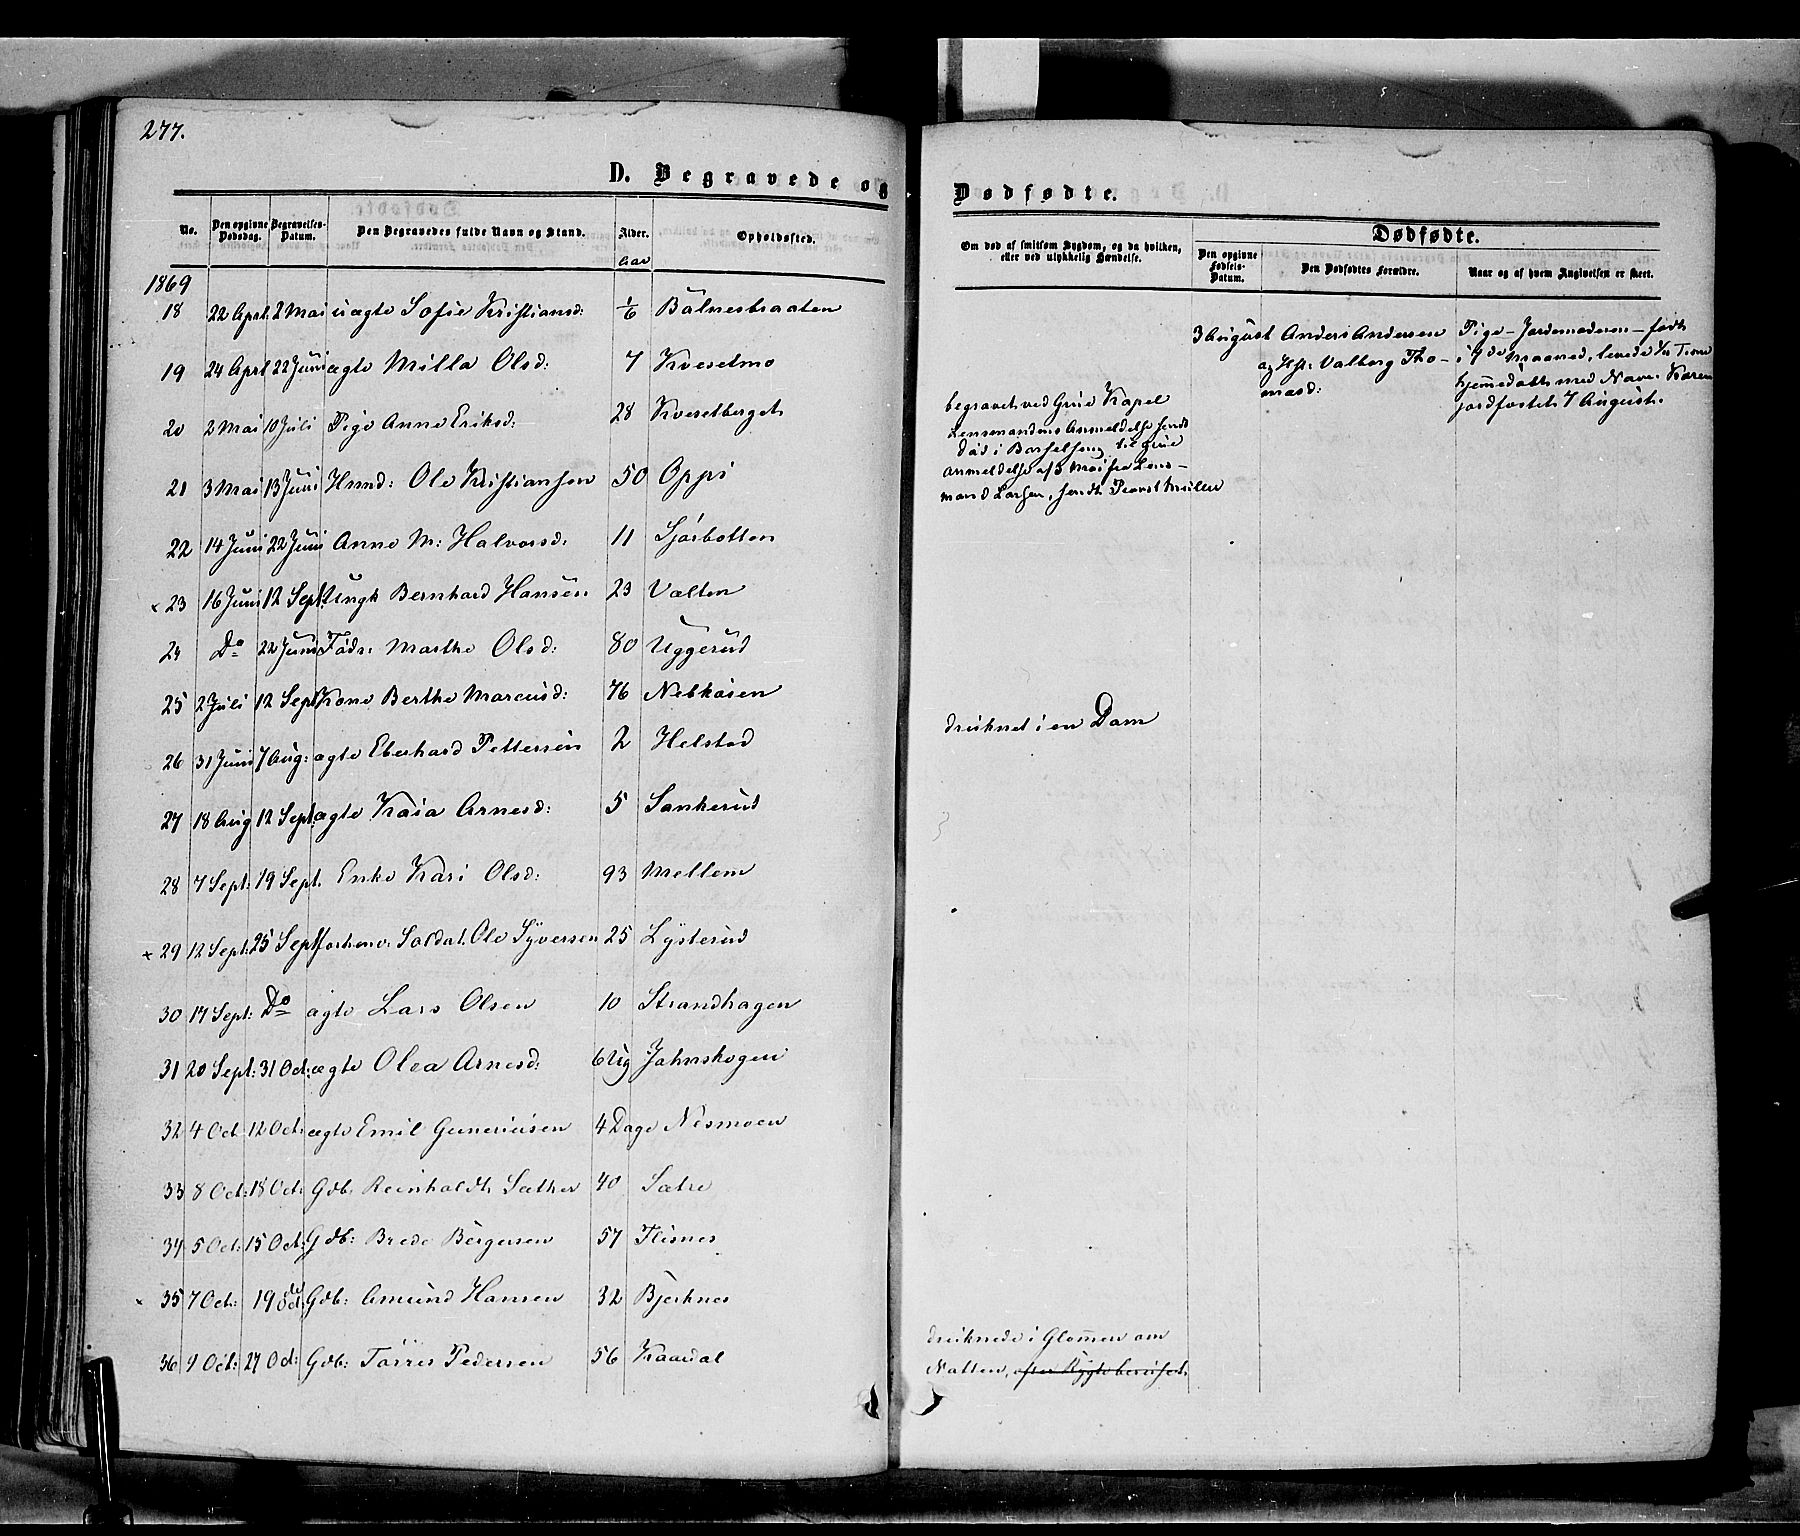 277.
D. Begravede og
No. Den opgivne Dødsdag. Begravelses-Datum. Den Begravedes fulde Navn og Stand. Alder. Opholdssted.
Aar
1869
18 22 April 2 Mai uægte Sofie Kristiansd: 1/6 Bälnesbraaten
19 24 April 22 Juni ægte Milla Olsd: 7 Kveselmo
20 2 Mai 10 Juli Pige Anne Eriksd: 28 Kvesetberget
21 3 Mai 13 Juni Hmnd: Ole Kristiansen 50 Oppi
22 14 Juni 22 Juni Anne M: Halvorsd: 11 Sjørbotten
× 23 16 Juni 12 Sept: Ungk Bernhard Hansen 23 Valten
24 Do 22 Juni Födr: Marthe Olsd: 80 Uggerud
25 2 Juli 12 Sept Kone Berthe Marcusd: 76 Nebkäsen
26 31 Juni 7 Aug: ægte Eberhard Pettersen 2 Helstad
27 18 Aug 12 Sept: ægte Kaia Arnesd: 5 Sankerud
28 7 Sept: 19 Sept. Enke Kari Olsd: 93 Mellem
× 29 12 Sept: 25 Sept forhenv: Soldat. Ole Syversen 25 Lysterud
30 17 Sept: Do ægte Lars Olsen 10 Strandhagen
31 20 Sept: 31 Oct: ægte Olea Arnesd: 6 Ug Jahnskogen
32 4 Oct 12 Oct: ægte Emil Guneriusen 4 Dage Nesmoen
33 8 Oct: 18 Oct: Gdb. Reinholdt Sæther 40 Sætre
34 5 Oct: 15 Oct: Gdb: Brede Börgersen 57 Flisnes
× 35 7 Oct: 19de Oct: Gdb: Amund Hansen 32 Bjerknes
36 9 Oct: 27 Oct: Gdb: Törris Pedersen 56 Kaardal
Dødfødte.
Om død af smitsom Sygdom, og da hvilken, eller ved ulykkelig Hændelse.
Dødfødte.
Den opgivne Fødsels-Datum. Den Dødfødtes Forældre. Naar og af hvem Angivelsen er skeet.
3 August Anders Andersen Pige – Jordemoderen – født
og Hst: Valborg Tho- i 7de Maaned, levede 1/2 Time
masd: hjemmedøbt med Navn Karen
jordfæstet 7 August.
begravet ved Grue Kapel
Lensmandens Anmeldelse sendt
død i Barselseng til Grue
anmeldelse af 3 Mai fra Lens-
mand Larsen, sendt Provst Müller
druknet i en Dam
druknede i Glommen om
Natten, efter Rygte beruset.